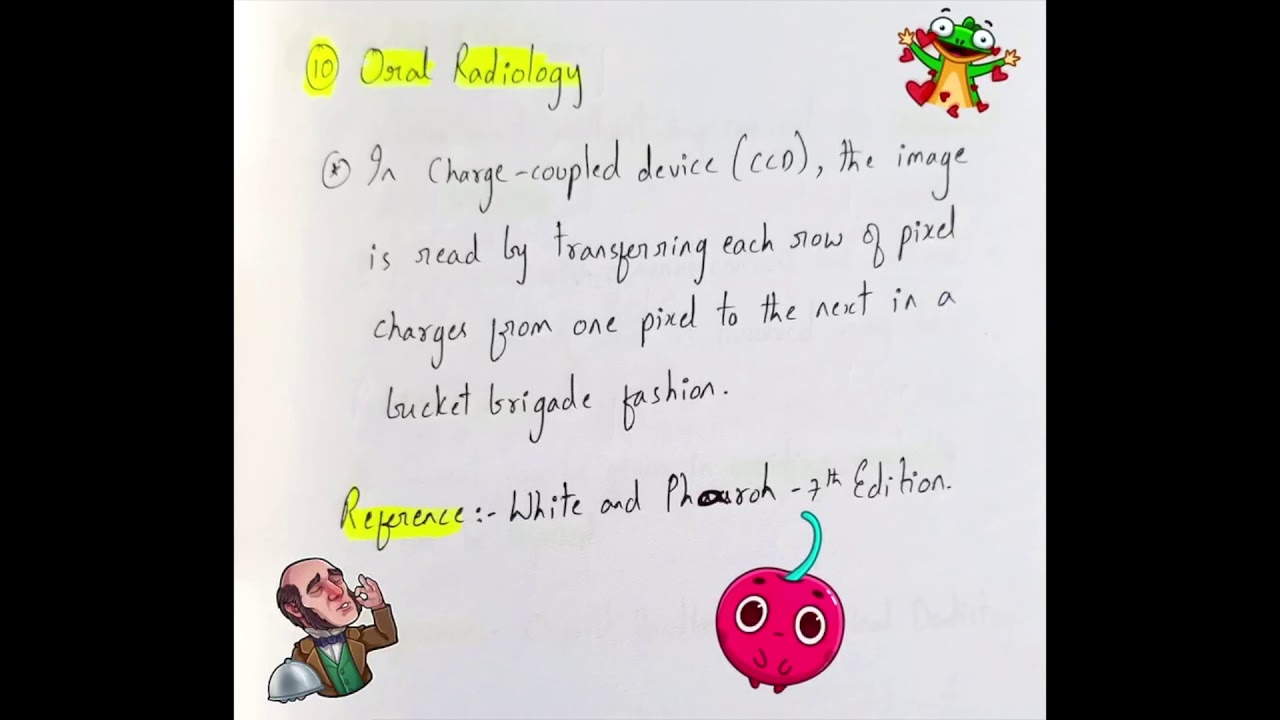 10 Oral Radiology
* In Charge-coupled device (CCD), the image
is read by transferring each row of pixel
charges from one pixel to the next in a
bucket brigade fashion.
Reference :- White and Pharoh - 7th Edition.